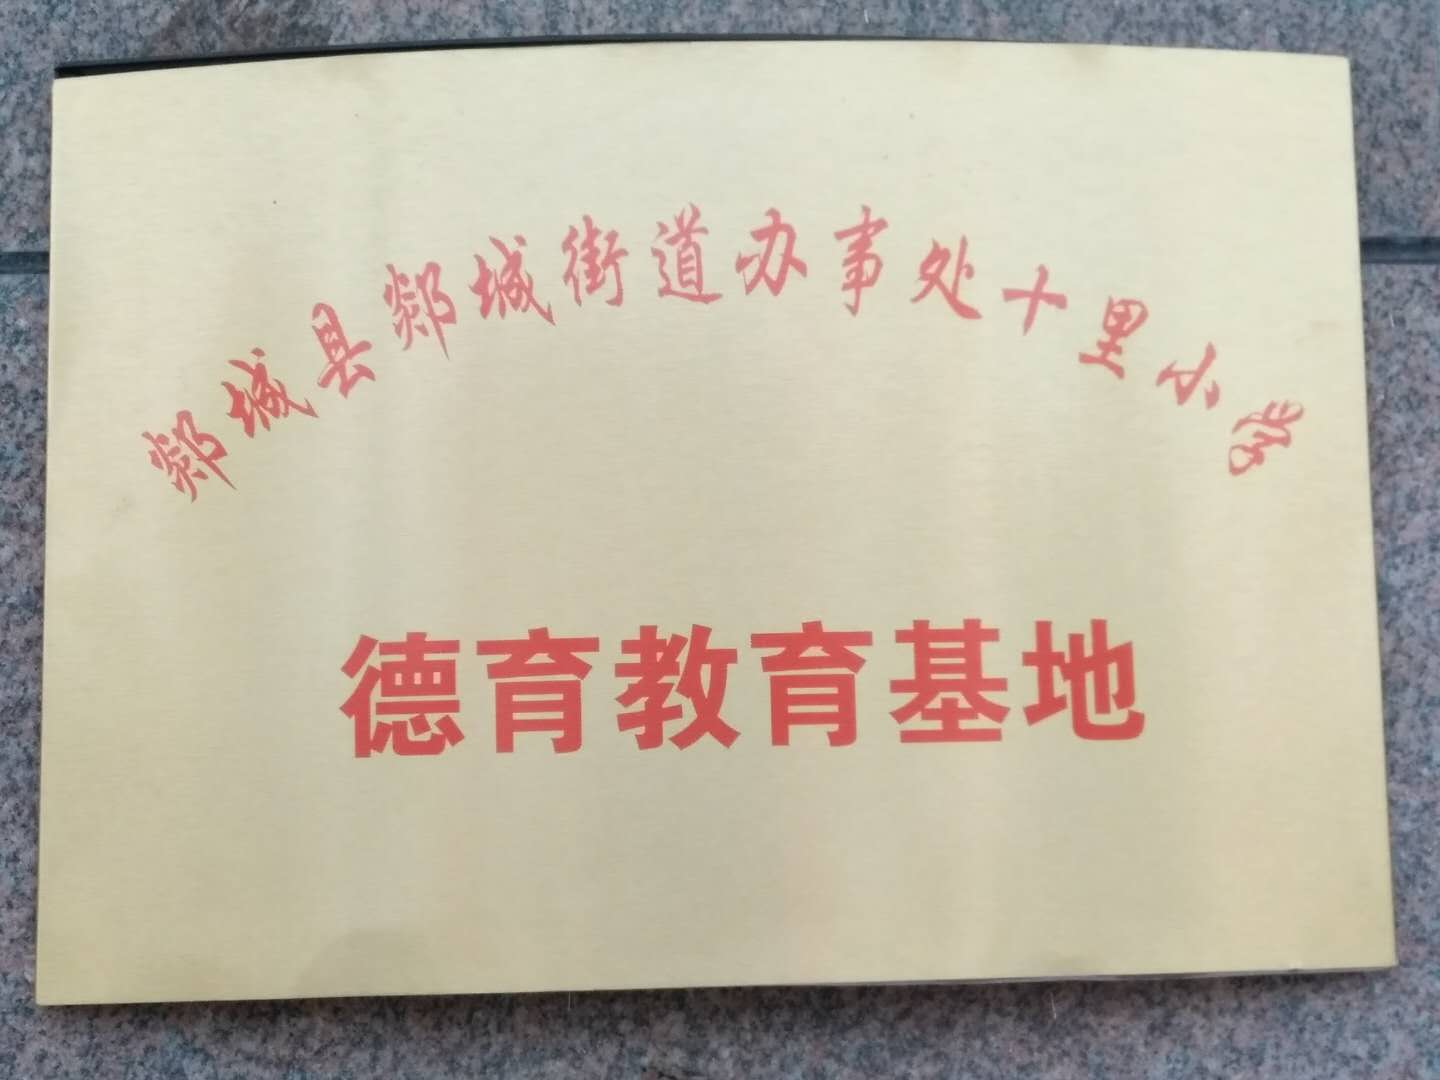 郯城县郯城街道办事处十里小学
德育教育基地